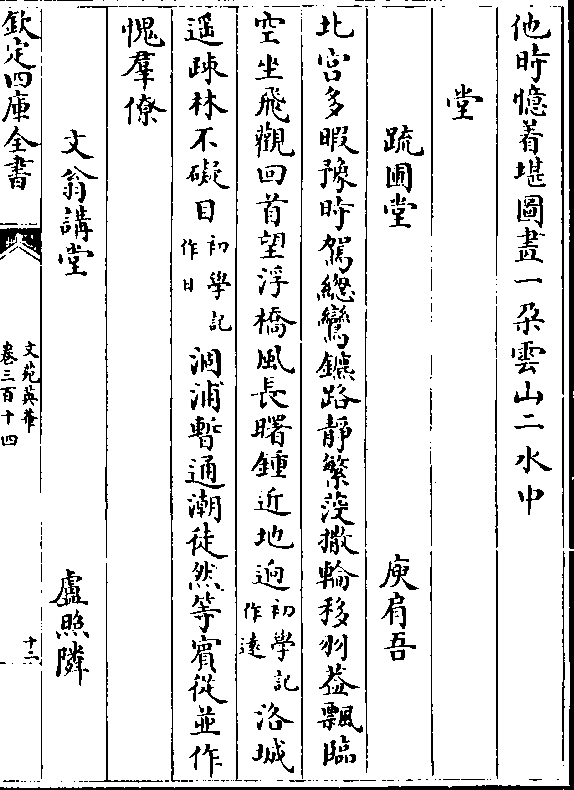 他時憶着堪圖畫一朶雲山二水中
堂
疏圃堂　庾肩吾
北宫多暇豫時駕總鸞鑣路静繁笳撤輪移羽葢飄臨
空坐飛觀回首望浮橋風長曙鍾近地逈初學記作遠洛城
遥疎林不礙目初學記作日涸浦暫通潮徒然等賓從並作
愧羣僚
文翁講堂　盧照隣
欽定四庫全書
文苑英華
卷三百十四
十二